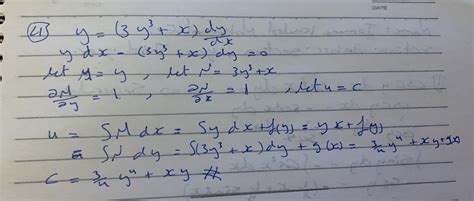 DATE
(4) y = (3y³ + x) dy/dx
y dx - (3y³ + x) dy = 0
let M = y , let N = 3y³ + x
∂M/∂y = 1 , ∂N/∂x = 1 , let u = c
u = ∫M dx = ∫y dx + f(y) = yx + f(y)
= ∫N dy = ∫(3y³ + x) dy + g(x) = 3/4 y⁴ + xy + g(x)
C = 3/4 y⁴ + xy #